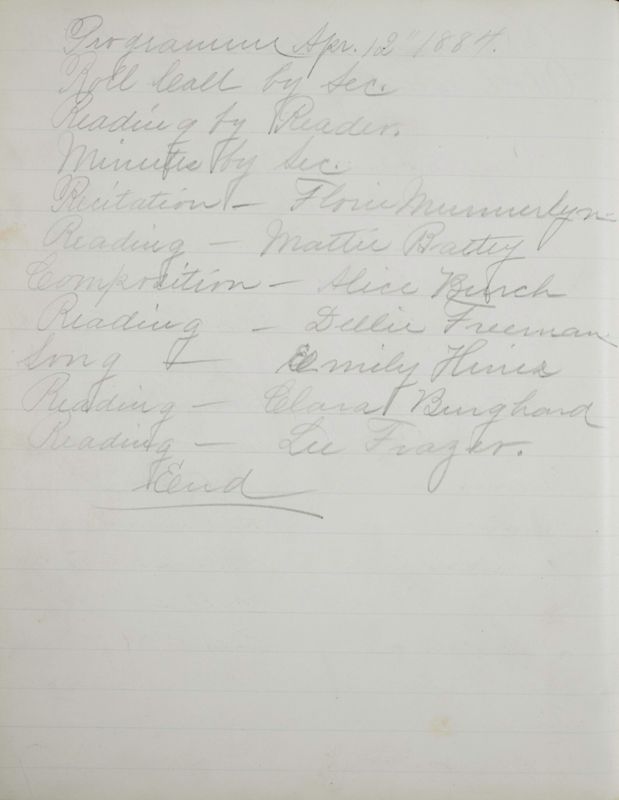 Programme Apr. 12" 1884.
Roll Call by Sec.
Reading by Reader.
Minutes by Sec.
Recitation – Florie Munnerlyn
Reading – Mattie Battey
Composition – Alice Burch
Reading – Dellie Freeman
Song – Emily Hines
Reading – Clara Burghard
Reading – Lee Frazer.
End